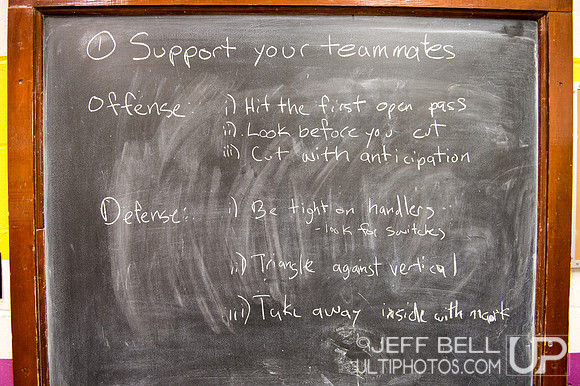 ① Support your teammates
Offense: i) Hit the first open pass
ii) Look before you cut
iii) Cut with anticipation
Defense: i) Be tight on handlers
- look for switches
ii) Triangle against vertical
iii) Take away inside with mark
© JEFF BELL UP
ULTIPHOTOS.COM